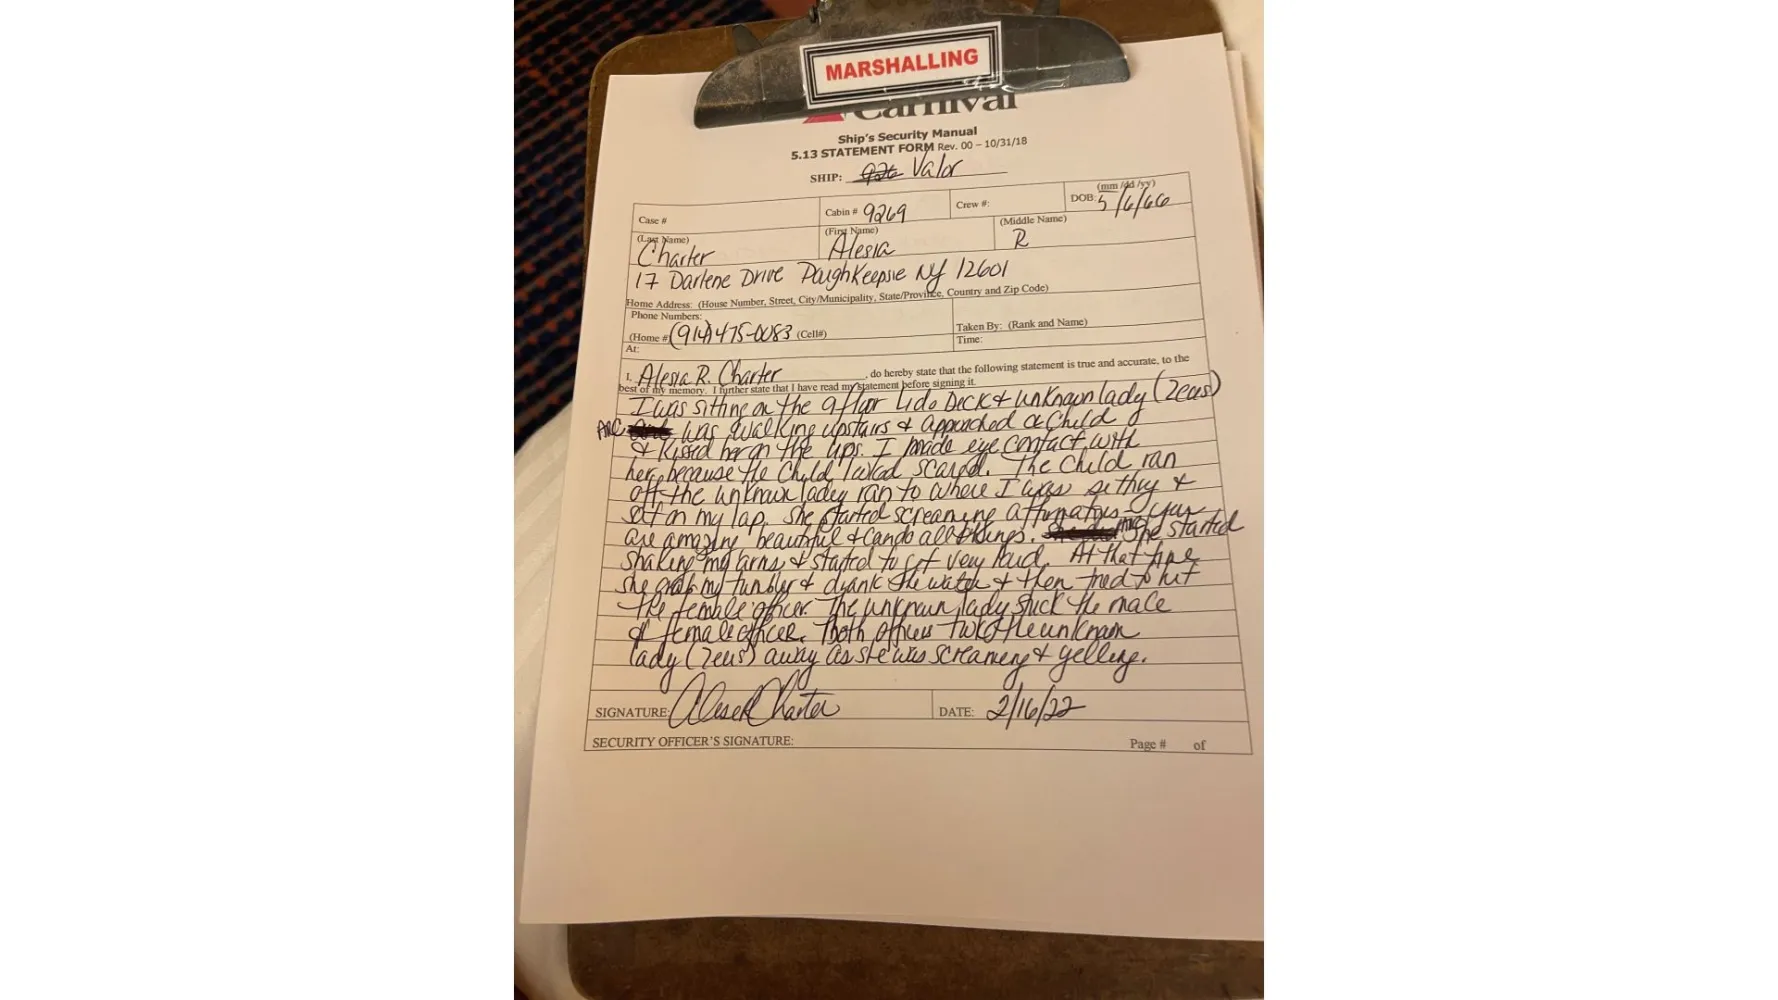 MARSHALLING
Carnival
Ship's Security Manual
5.13 STATEMENT FORM Rev. 00 – 10/31/18
SHIP: Valor
Case #
Cabin # 9269
Crew #:
(mm/dd/yy)
DOB: 5/6/66
(Last Name)
Charter
(First Name)
Alesia
(Middle Name)
R
17 Darlene Drive Poughkeepsie NY 12601
Home Address: (House Number, Street, City/Municipality, State/Province, Country and Zip Code)
Phone Numbers:
(Home # (914) 475-0083 (Cell#)
Taken By: (Rank and Name)
At:
Time:
I, Alesia R. Charter, do hereby state that the following statement is true and accurate, to the
best of my memory. I further state that I have read my statement before signing it.
I was sitting on the 9 floor Lido Deck & unknown lady (Zeus)
ARC was walking upstairs & a child
& kissed her on the lips. I made eye contact with
her, because the child looked scared. The child ran
off, the unknown lady ran to where I was sitting &
sat on my lap. She started screaming - you
are amazing beautiful & can do all things. ARC She started
shaking my arms & started to get very loud. At that time
she grab my & drank the water & then tried to hit
the female officer. The unknown lady the mace
of female officer. Both officers took the unknown
lady (Zeus) away as she was screaming & yelling.
SIGNATURE: Alesia R Charter
DATE: 2/16/22
SECURITY OFFICER'S SIGNATURE:
Page # of